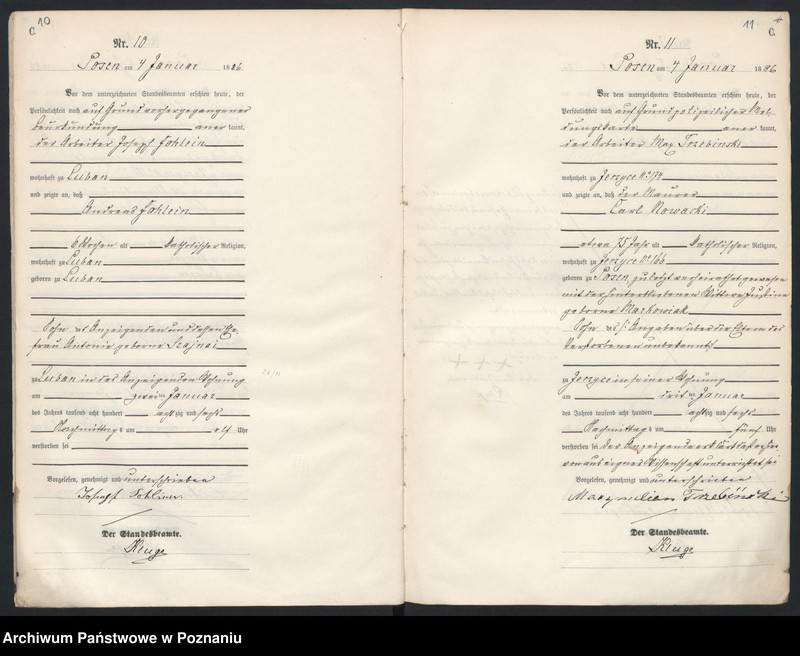 10
C
Nr. 10
Posen am 4 Januar 1886
Vor dem unterzeichneten Standesbeamten erschien heute, der
Persönlichkeit nach auf Grund vorhergegangener
Beurkundung anerkannt,
der Arbeiter Joseph Fohlein
wohnhaft zu Luban
und zeigte an, daß
Andreas Fohlein
6 Wochen alt katholischer Religion,
wohnhaft zu Luban
geboren zu Luban
Sohn des Anzeigenden und dessen Ehe-
frau Antonie geborne Szajnai
zu Luban in des Anzeigenden Wohnung
am zweiten Januar
des Jahres tausend acht hundert achtzig und sechs
Nachmittags um elf Uhr
verstorben sei
Vorgelesen, genehmigt und unterschrieben
Joseph
Der Standesbeamte.
Kluge
11
C
Nr. 11
Posen am 4 Januar 1886
Vor dem unterzeichneten Standesbeamten erschien heute, der
Persönlichkeit nach auf Grund polizeilicher Mel-
dungskarte anerkannt,
der Arbeiter Max Trzebinski
wohnhaft zu Jerzyce
und zeigte an, daß der Maurer
Carl Nowacki
etwa 75 Jahr alt katholischer Religion,
wohnhaft zu Jerzyce
geboren zu Posen, zuletzt verheirathet gewesen
mit der hinterbliebenen Wittwe Justine
geborne Markowiak
Sohn Angaben über die Eltern des
Verstorbenen unbekannt
zu Jerzyce in seiner Wohnung
am dritten Januar
des Jahres tausend acht hundert achtzig und sechs
Nachmittags um fünf Uhr
verstorben sei der Anzeigende erklärt daß er hier-
von aus eigner Wissenschaft unterrichtet sei
Vorgelesen, genehmigt und unterschrieben
Maxymilian Trzebiński
Der Standesbeamte.
Kluge
Archiwum Państwowe w Poznaniu